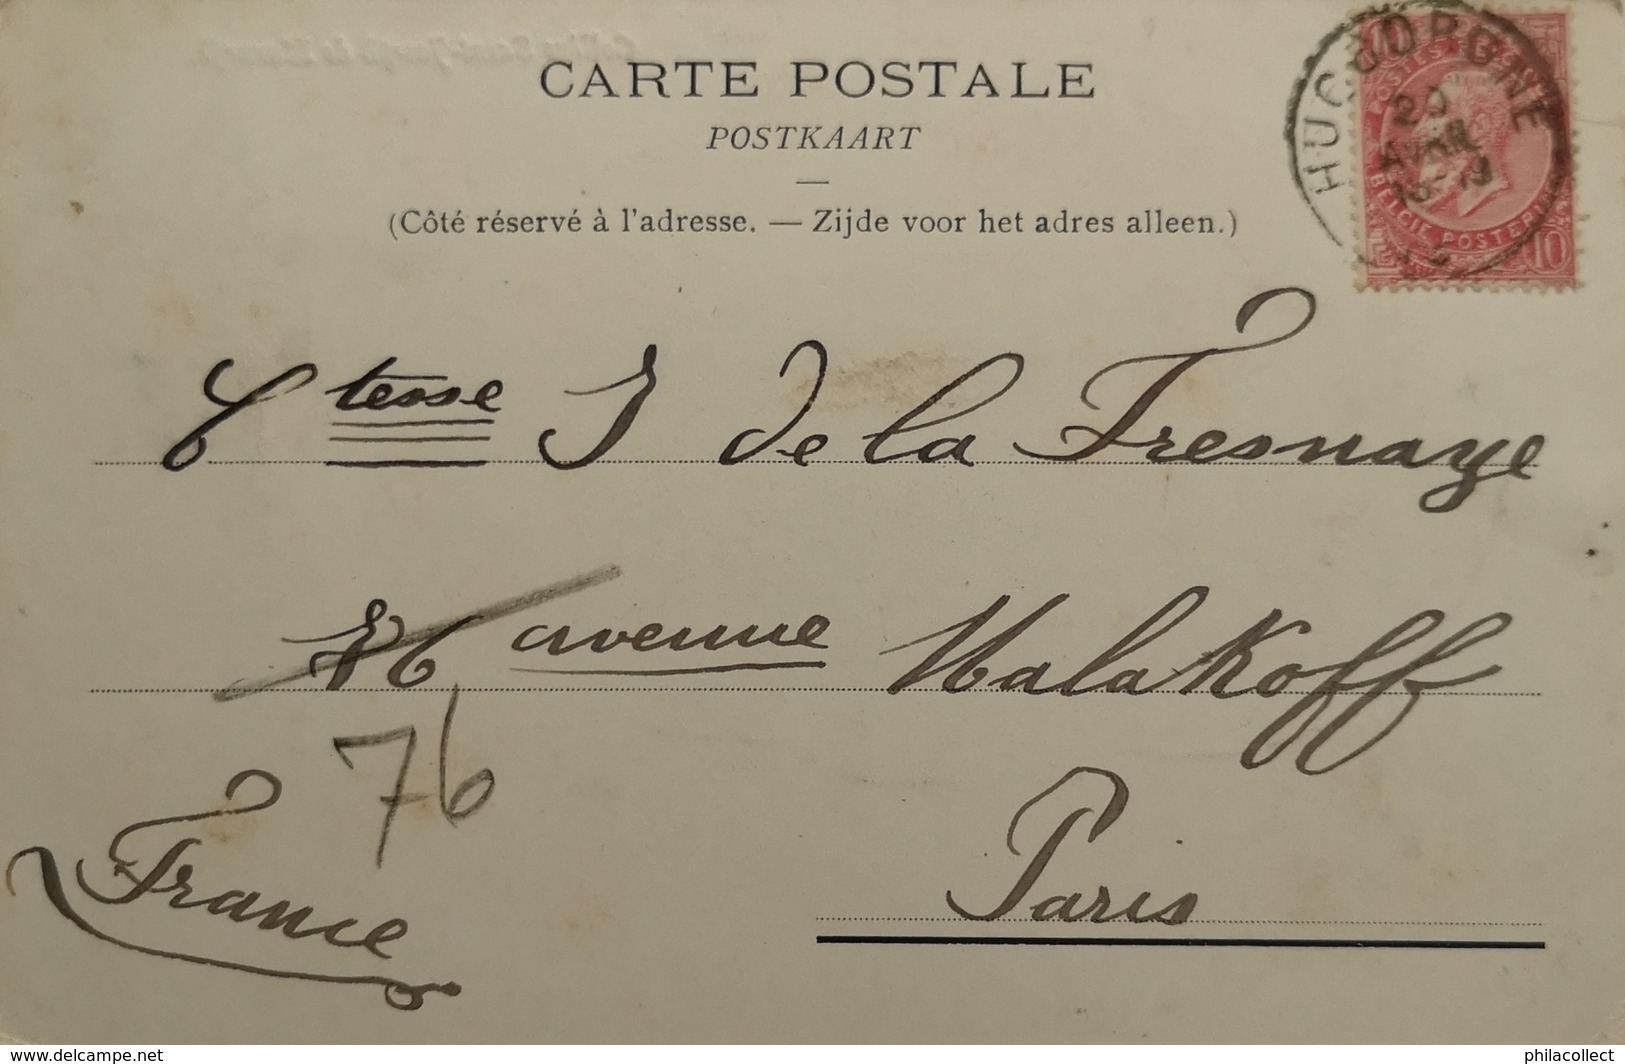 CARTE POSTALE
POSTKAART
(Côté réservé à l'adresse. — Zijde voor het adres alleen.)
HUCCORGNE
20
AVRIL
BELGIE POSTERIJ
10
Ctesse J de la Fresnaye
avenue Malakoff
76
Paris
France
www.delcampe.net
philacollect